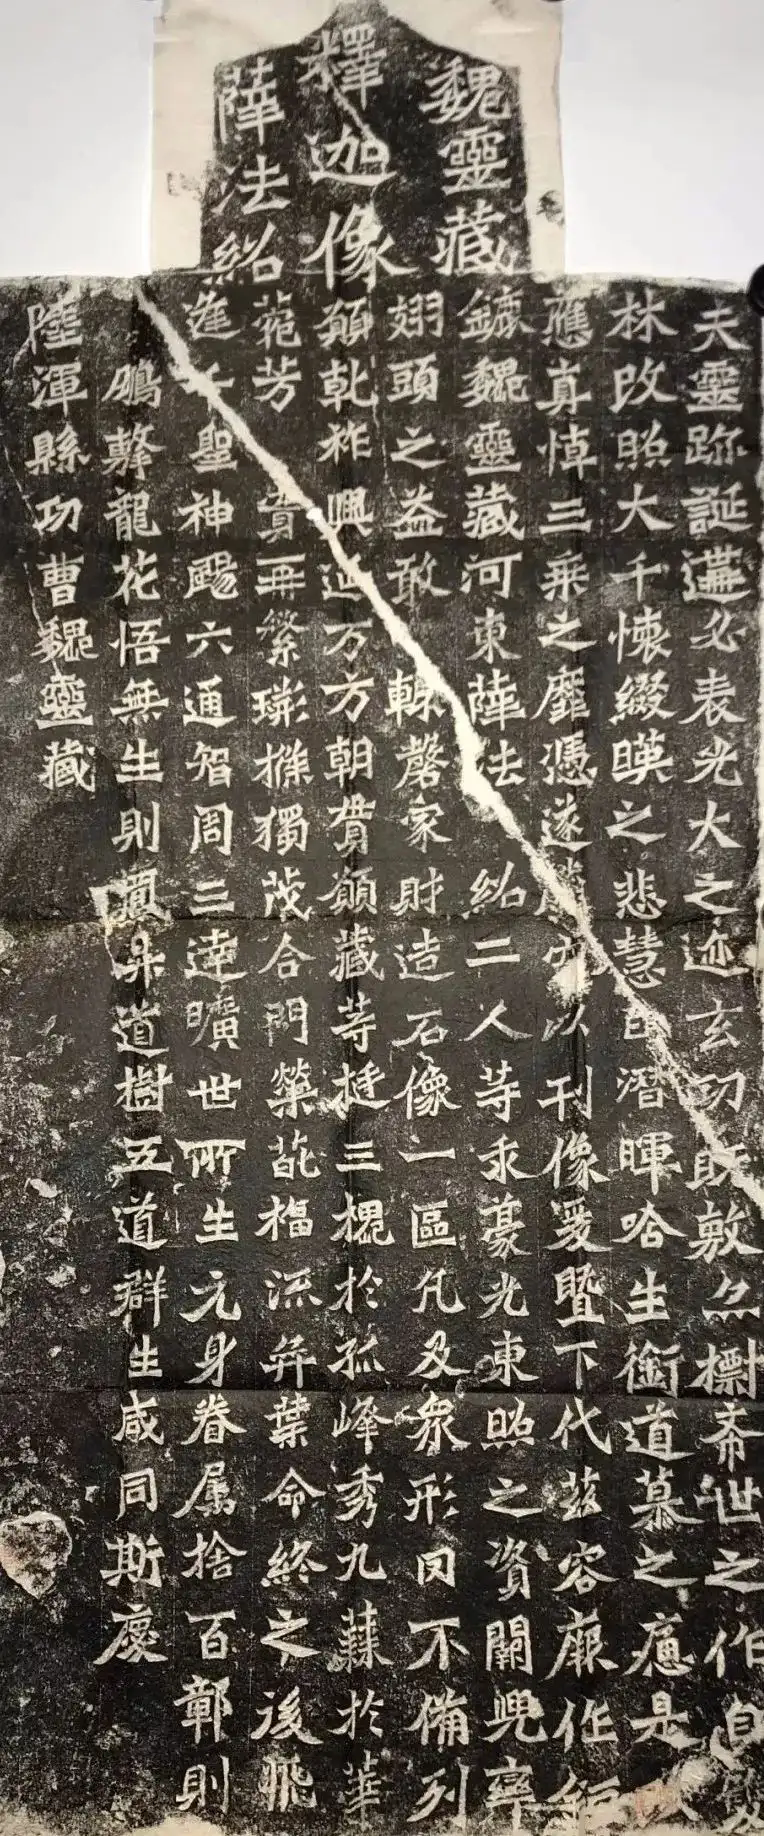 魏靈藏
釋迦像
薛法紹
夫靈跡誕遘必表光大之迹玄功既敷亦標希世之作自雙
林改照大千懷綴暎之悲慧日潛暉唅生銜道慕之痛是
應真悼三乘之靡憑遂騰空以刊像爰暨下代茲容厥作鉅
鏕魏靈藏河東薛法紹二人等求豪光東照之資闕兜率
翅頭之益敢輒磬家財造石像一區凡及衆形罔不備列
願乾祚興延万方朝貫願藏等挺三槐於孤峰秀九蕀於華
菀芳實再繁璘摛獨茂合門榮葩福流奕葉命終之後飛
逢千聖神颺六通智周三達曠世所生元身眷属捨百鄣則
鵬擊龍花悟無生則鳳昇道樹五道群生咸同斯慶
陸渾縣功曹魏靈藏